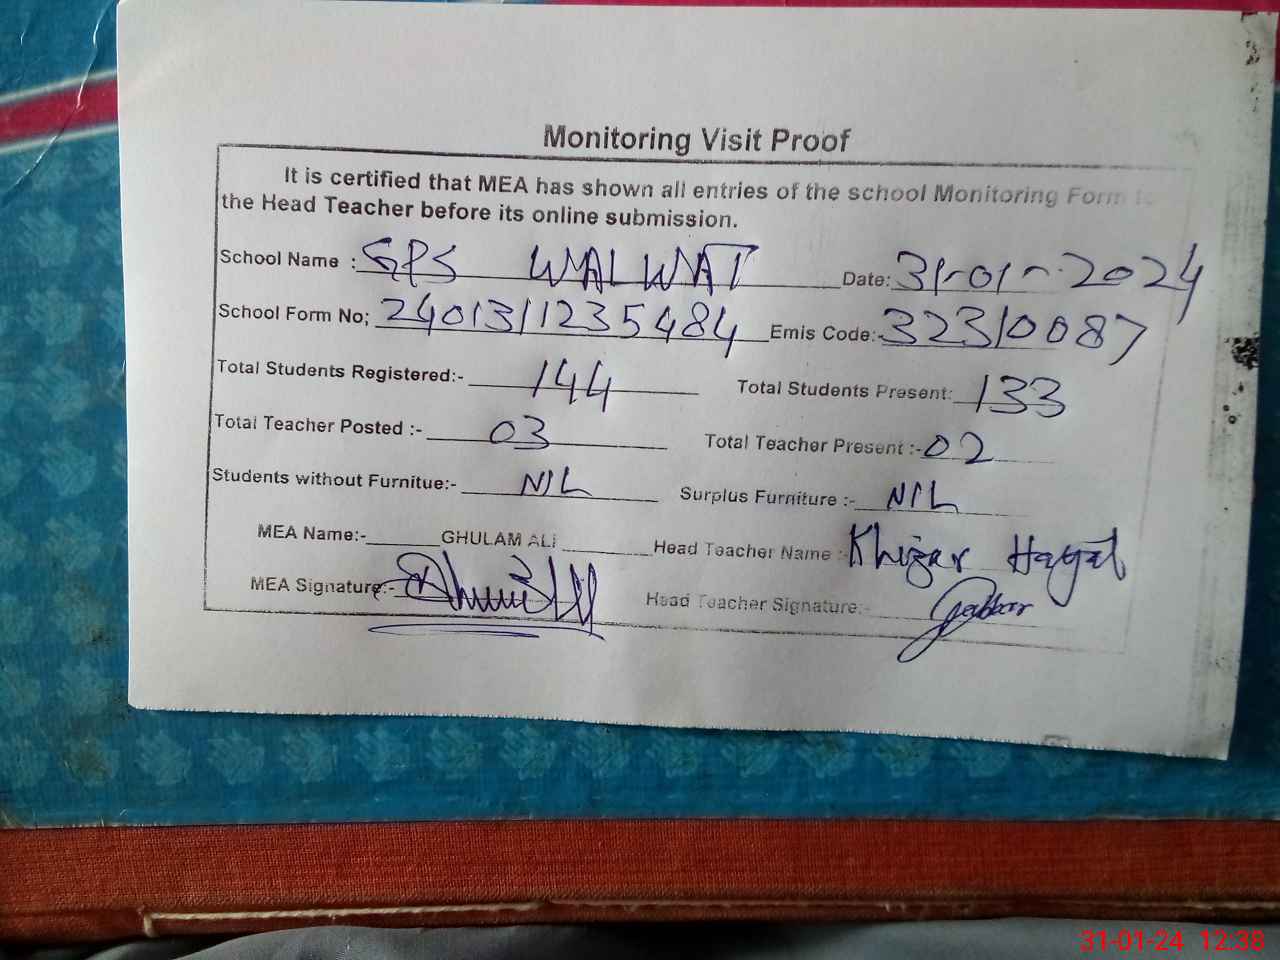 Monitoring Visit Proof
It is certified that MEA has shown all entries of the school Monitoring Form to
the Head Teacher before its online submission.
School Name :- GPS WALWAT Date:- 31-01-2024
School Form No; 2401311235484 Emis Code:- 32310087
Total Students Registered:- 144 Total Students Present:- 133
Total Teacher Posted :- 03 Total Teacher Present :- 02
Students without Furnitue:- NIL Surplus Furniture :- NIL
MEA Name:- GHULAM ALI Head Teacher Name :- Khizar Hayat
MEA Signature:- Head Teacher Signature:-
31-01-24 12:38